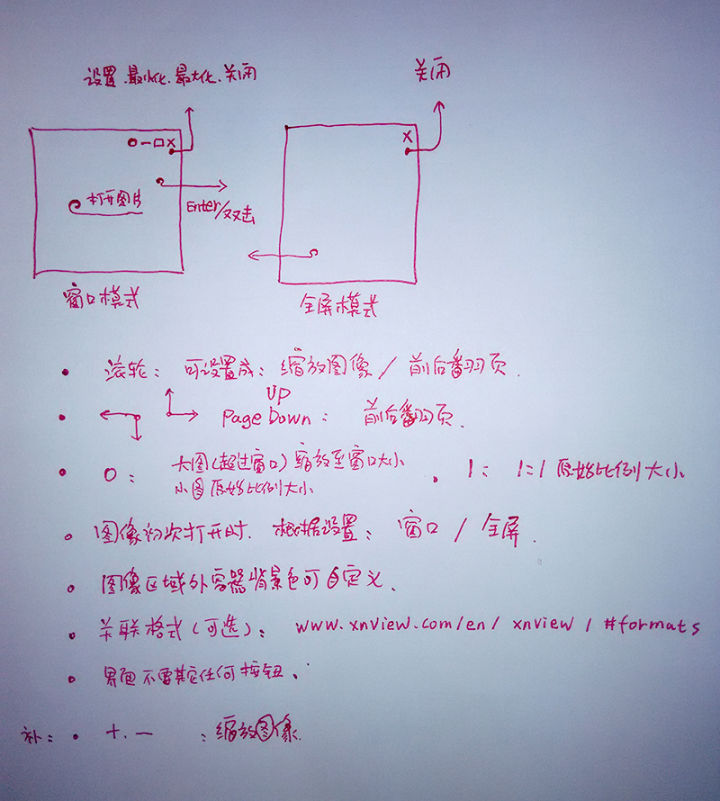 设置.最小化.最大化.关闭
关闭
o—口X
X
打开图片
Enter/双击
窗口模式
全屏模式
• 滚轮：可设置成：缩放图像/前后翻页.
UP
• Page Down：前后翻页.
• 0：大图(超过窗口)缩放至窗口大小
小图原始比例大小
• 1：1:1原始比例大小
• 图像初次打开时.根据设置：窗口/全屏.
• 图像区域外容器背景色可自定义.
• 关联格式(可选)：www.xnview.com/en/xnview/#formats
• 界面不需其它任何按钮.
补：• +.— ：缩放图像.